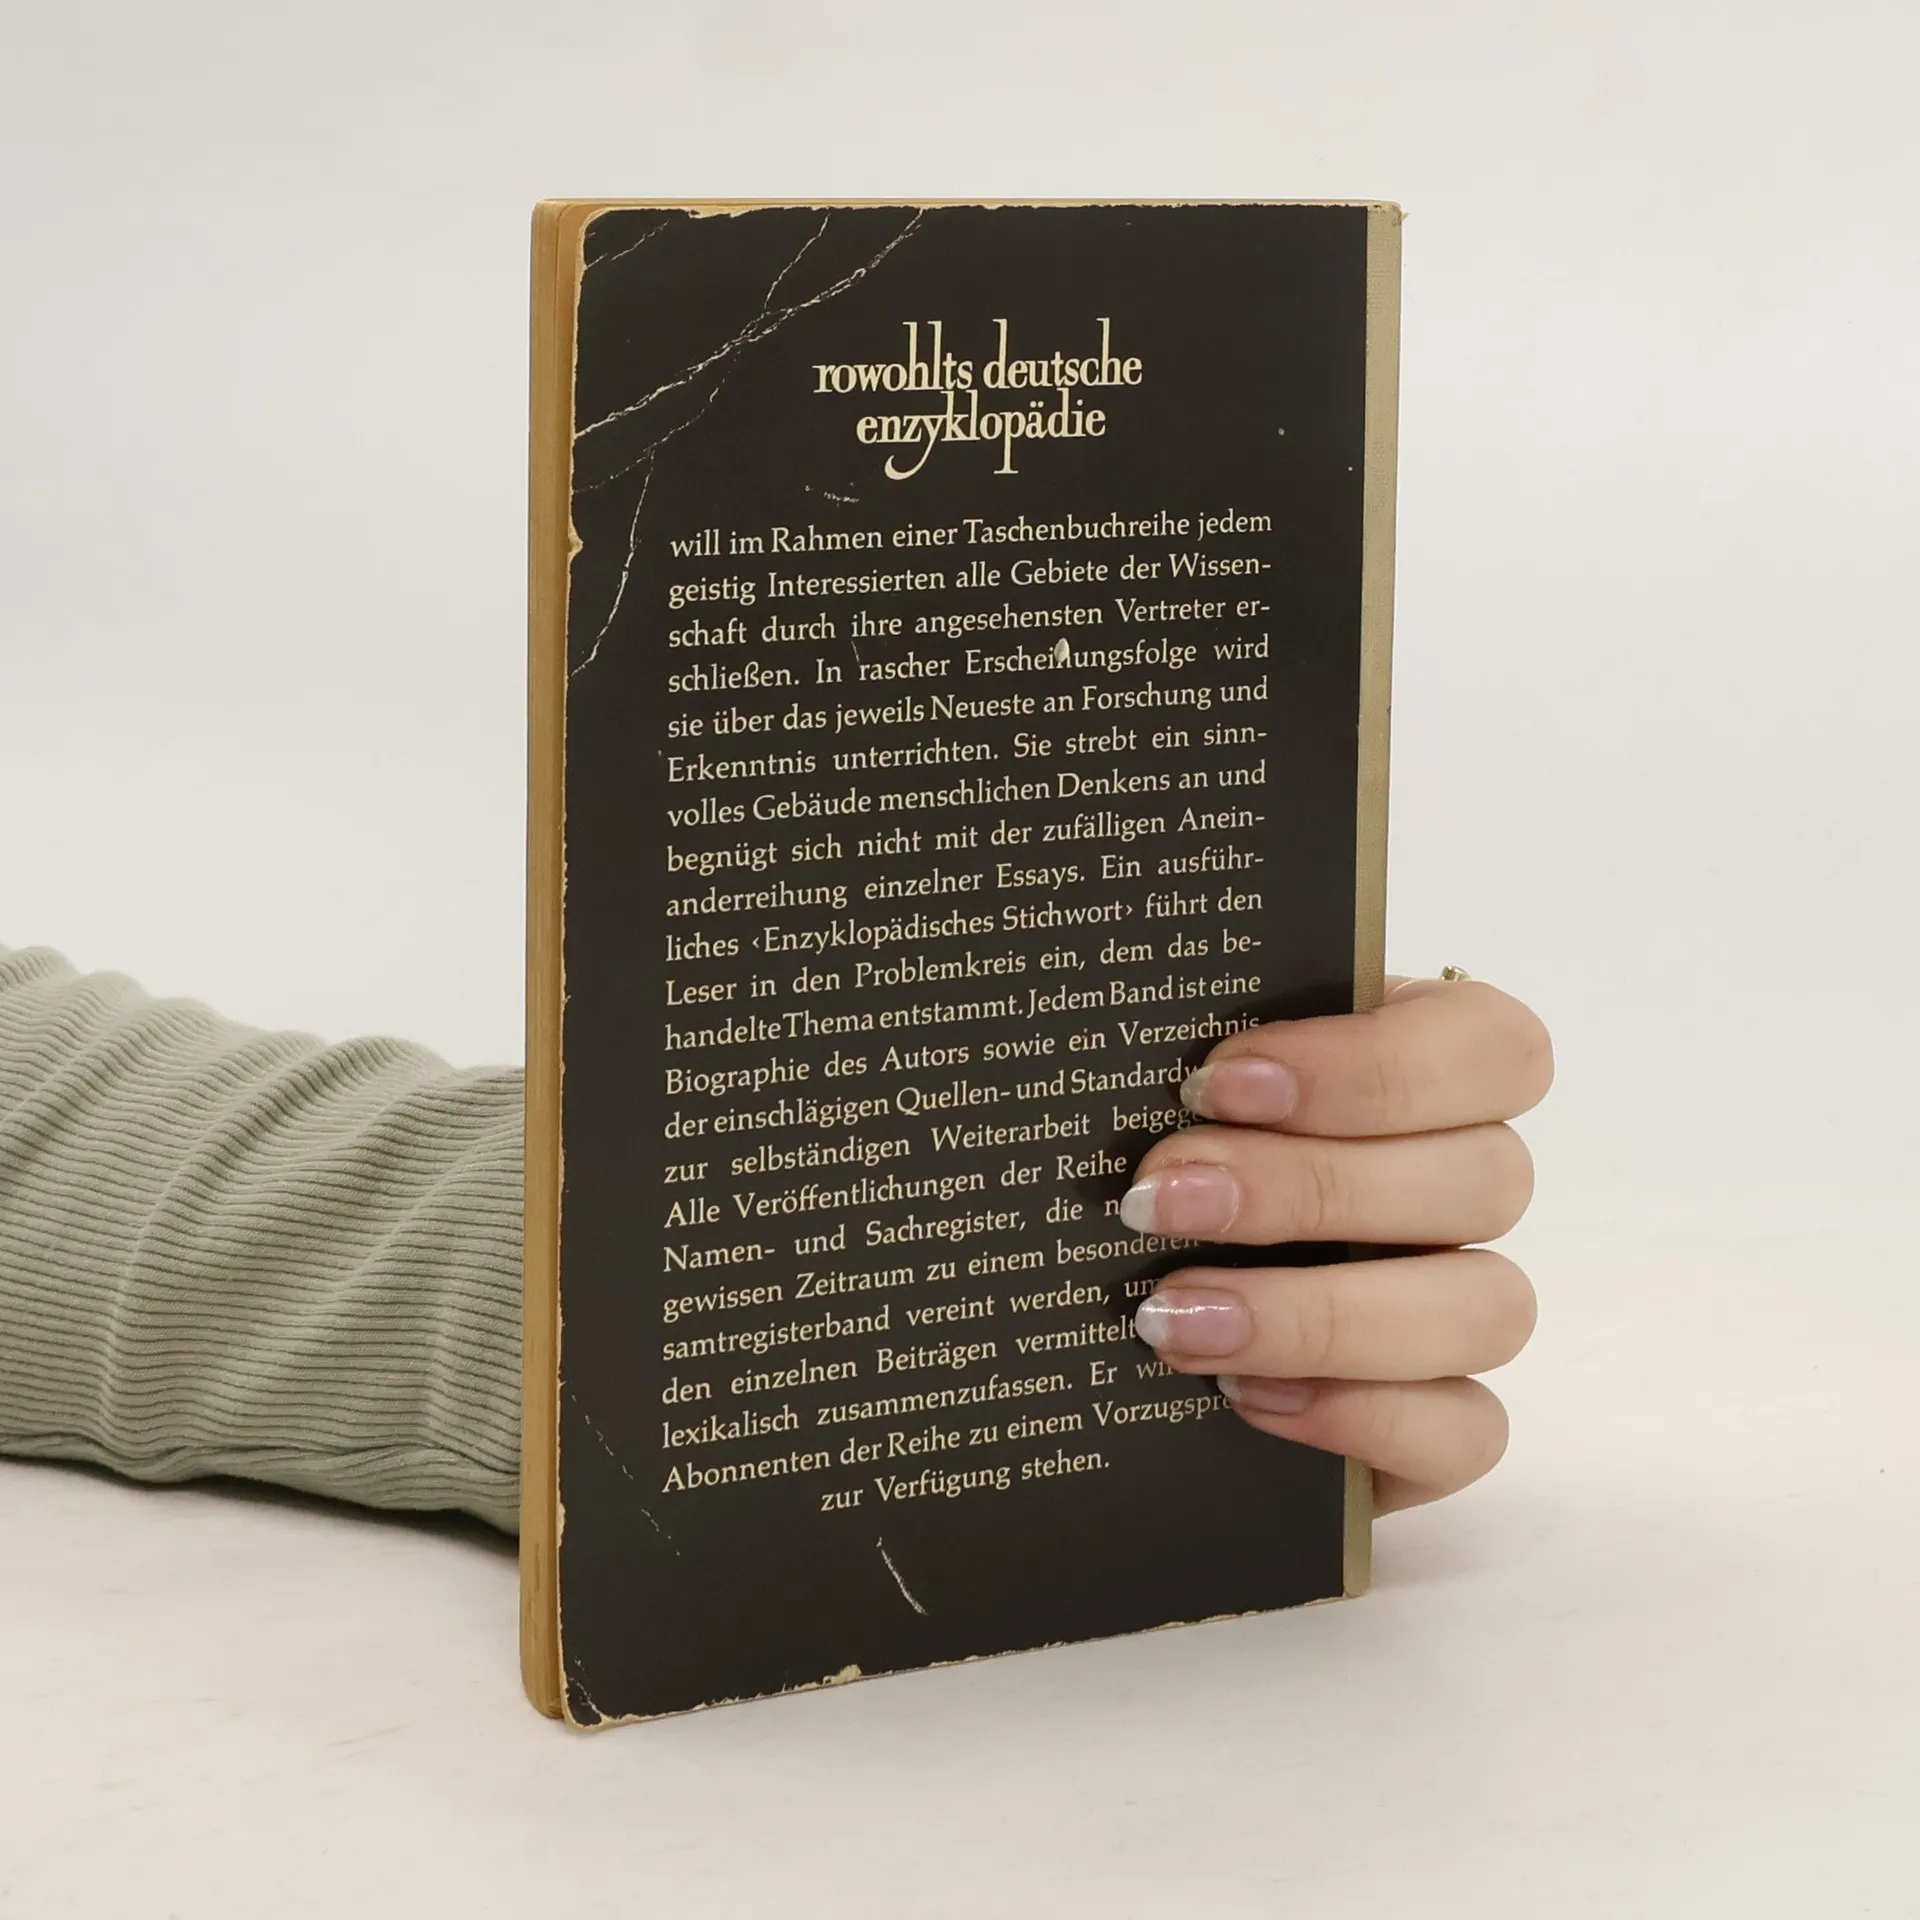 rowohlts deutsche
enzyklopädie
will im Rahmen einer Taschenbuchreihe jedem
geistig Interessierten alle Gebiete der Wissen-
schaft durch ihre angesehensten Vertreter er-
schließen. In rascher Erscheinungsfolge wird
sie über das jeweils Neueste an Forschung und
Erkenntnis unterrichten. Sie strebt ein sinn-
volles Gebäude menschlichen Denkens an und
begnügt sich nicht mit der zufälligen Anein-
anderreihung einzelner Essays. Ein ausführ-
liches ‹Enzyklopädisches Stichwort› führt den
Leser in den Problemkreis ein, dem das be-
handelte Thema entstammt. Jedem Band ist eine
Biographie des Autors sowie ein Verzeichnis
der einschlägigen Quellen- und
zur selbständigen Weiterarbeit
Alle Veröffentlichungen der Reihe
Namen- und Sachregister, die
gewissen Zeitraum zu einem besonderen
samtregisterband vereint werden,
den einzelnen Beiträgen
lexikalisch zusammenzufassen. Er
Abonnenten der Reihe zu einem
zur Verfügung stehen.